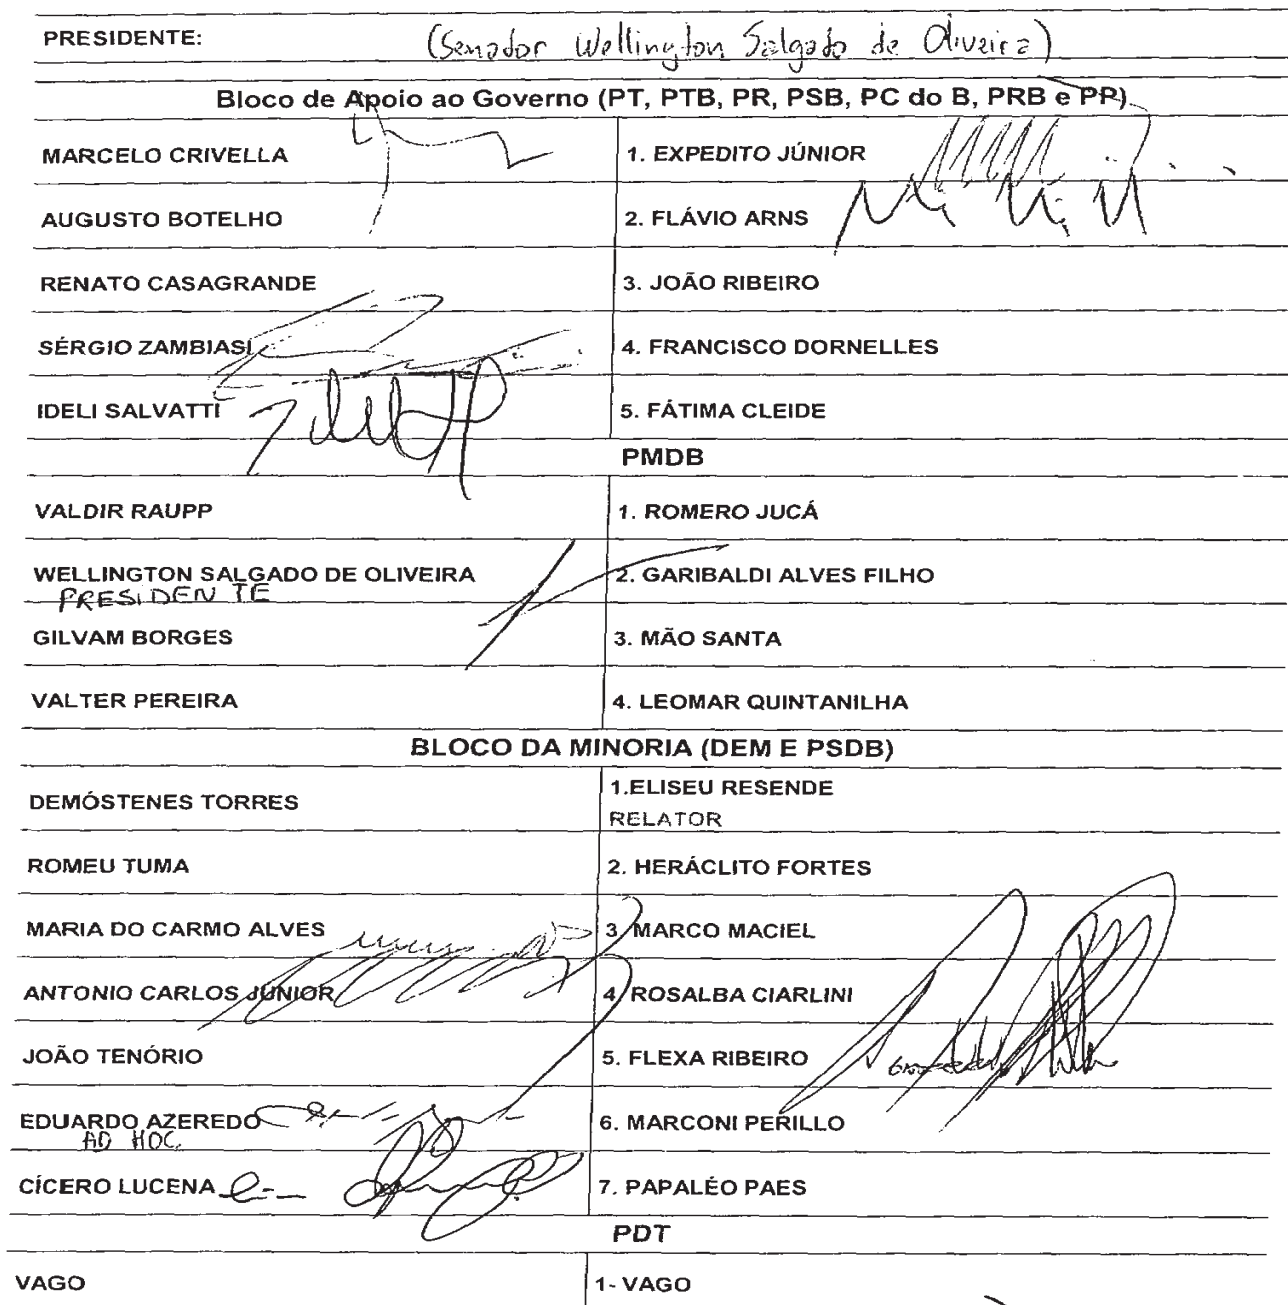 PRESIDENTE: (Senador Wellington Salgado de Oliveira)
Bloco de Apoio ao Governo (PT, PTB, PR, PSB, PC do B, PRB e PP)
MARCELO CRIVELLA 1. EXPEDITO JÚNIOR
AUGUSTO BOTELHO 2. FLÁVIO ARNS
RENATO CASAGRANDE 3. JOÃO RIBEIRO
SÉRGIO ZAMBIASI 4. FRANCISCO DORNELLES
IDELI SALVATTI 5. FÁTIMA CLEIDE
PMDB
VALDIR RAUPP 1. ROMERO JUCÁ
WELLINGTON SALGADO DE OLIVEIRA 2. GARIBALDI ALVES FILHO
PRESIDENTE
GILVAM BORGES 3. MÃO SANTA
VALTER PEREIRA 4. LEOMAR QUINTANILHA
BLOCO DA MINORIA (DEM E PSDB)
DEMÓSTENES TORRES 1.ELISEU RESENDE
RELATOR
ROMEU TUMA 2. HERÁCLITO FORTES
MARIA DO CARMO ALVES 3 MARCO MACIEL
ANTONIO CARLOS JÚNIOR 4 ROSALBA CIARLINI
JOÃO TENÓRIO 5. FLEXA RIBEIRO
EDUARDO AZEREDO 6. MARCONI PERILLO
AD HOC
CÍCERO LUCENA 7. PAPALÉO PAES
PDT
VAGO 1- VAGO